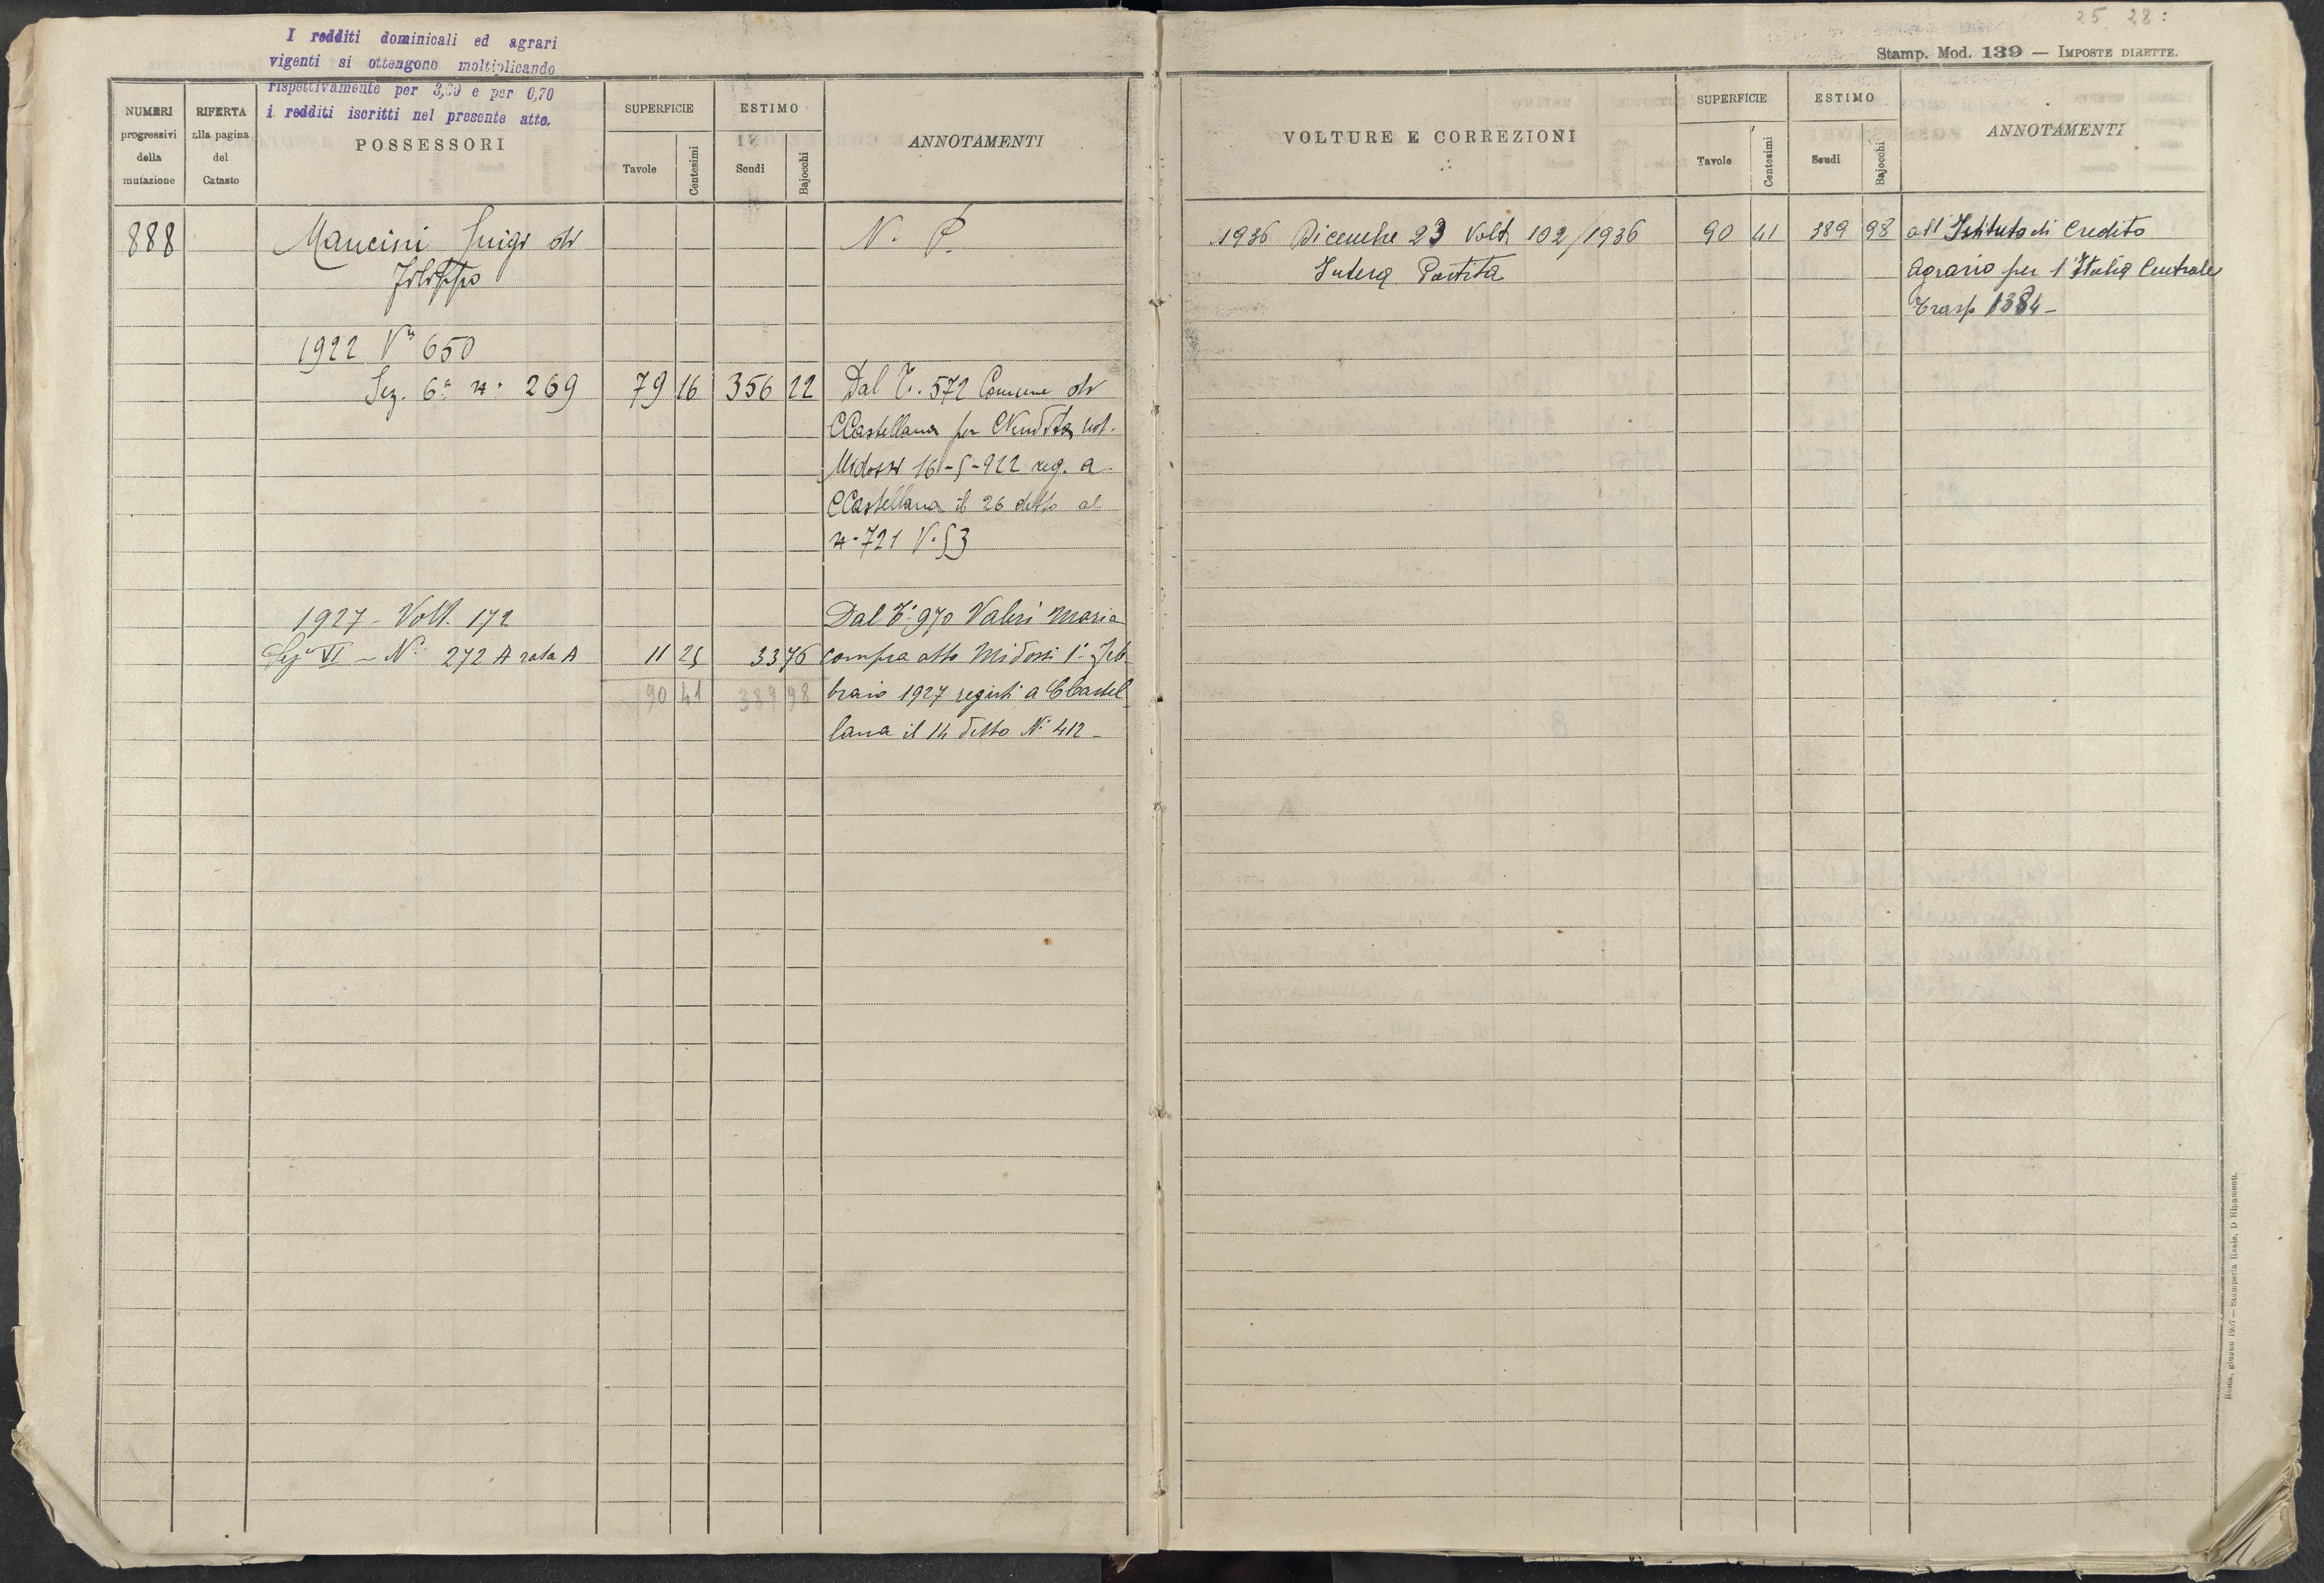 I redditi dominicali ed agrari
vigenti si ottengono moltiplicando
rispettivamente per 3,20 e per 0,70
i redditi iscritti nel presente atto.
NUMERI
progressivi
della
mutazione
RIFERTA
alla pagina
del
Catasto
POSSESSORI
SUPERFICIE
Tavole
Centesimi
ESTIMO
Scudi
Bajocchi
ANNOTAMENTI
888
Mancini Luigi di
Filippo
N. P.
1922 Vª 650
Sez. 6ª n. 269 79 16 356 22 Dal T. 572 Comune di
CCastellana per Vendita not.
Midossi 16-5-922 reg. a
CCastellana il 26 detto al
n. 721 V. 53
1927 - Volt. 172 Dal T. 970 Valeri Maria
Sez VI - N. 272 A rata A 11 25 33 76 compra atto Midossi 1° Feb
90 41 389 98 braio 1927 registr a CCastel
lana il 14 detto N. 412 -
25 28 :
Stamp. Mod. 139 — IMPOSTE DIRETTE.
VOLTURE E CORREZIONI
SUPERFICIE
Tavole
Centesimi
ESTIMO
Scudi
Bajocchi
ANNOTAMENTI
1936 Dicembre 23 Volt 102/1936 90 41 389 98 all'Istituto di Credito
Intera Partita Agrario per l'Italia Centrale
Trasp 1384 -
Stamperia Reale, D. Ripamonti.